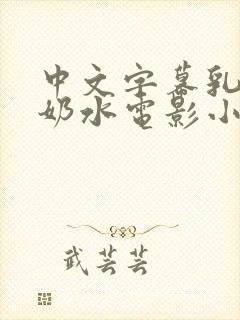 中文字幕乳
奶水电影小
武芸芸